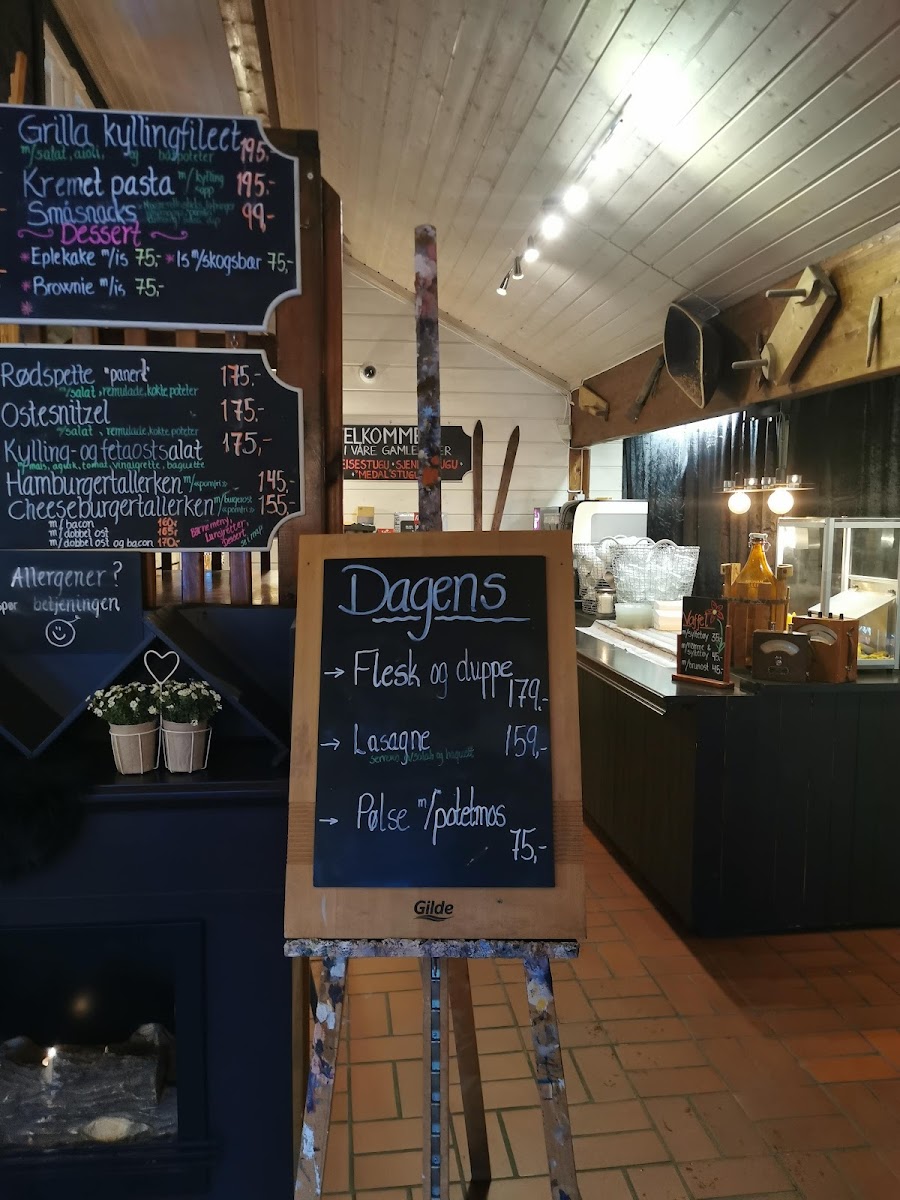 Grilla kyllingfileet 195,-
m/salat, aioli, og båtpoteter
Kremet pasta m/kylling 195,-
Småsnacks 99,-
Dessert
* Eplekake m/is 75,- * Is m/skogsbær 75,-
* Brownie m/is 75,-
Rødspette "panert" 175,-
m/salat, remulade, kokte poteter
Ostesnitzel 175,-
m/salat, remulade, kokte poteter
Kylling- og fetaostsalat 175,-
m/mais, agurk, tomat, vinaigrette, baguette
Hamburgertallerken m/pomfri 145,-
Cheeseburgertallerken m/pomfri 155,-
m/ bacon 160,-
m/ dobbel ost 165,-
m/ dobbel ost og bacon 170,-
Barnemeny,
Dessert
Allergener?
Spør betjeningen
ELKOMME
I VÅRE GAMLE
EISESTUGU • SJEN UGU
• MEDALSTUGU
Dagens
→ Flesk og duppe
179,-
→ Lasagne 159,-
→ Pølse m/potetmos
75,-
Gilde
Vaffel
m/syltetøy 35,-
m/rømme &
syltetøy 45,-
m/brunost 45,-